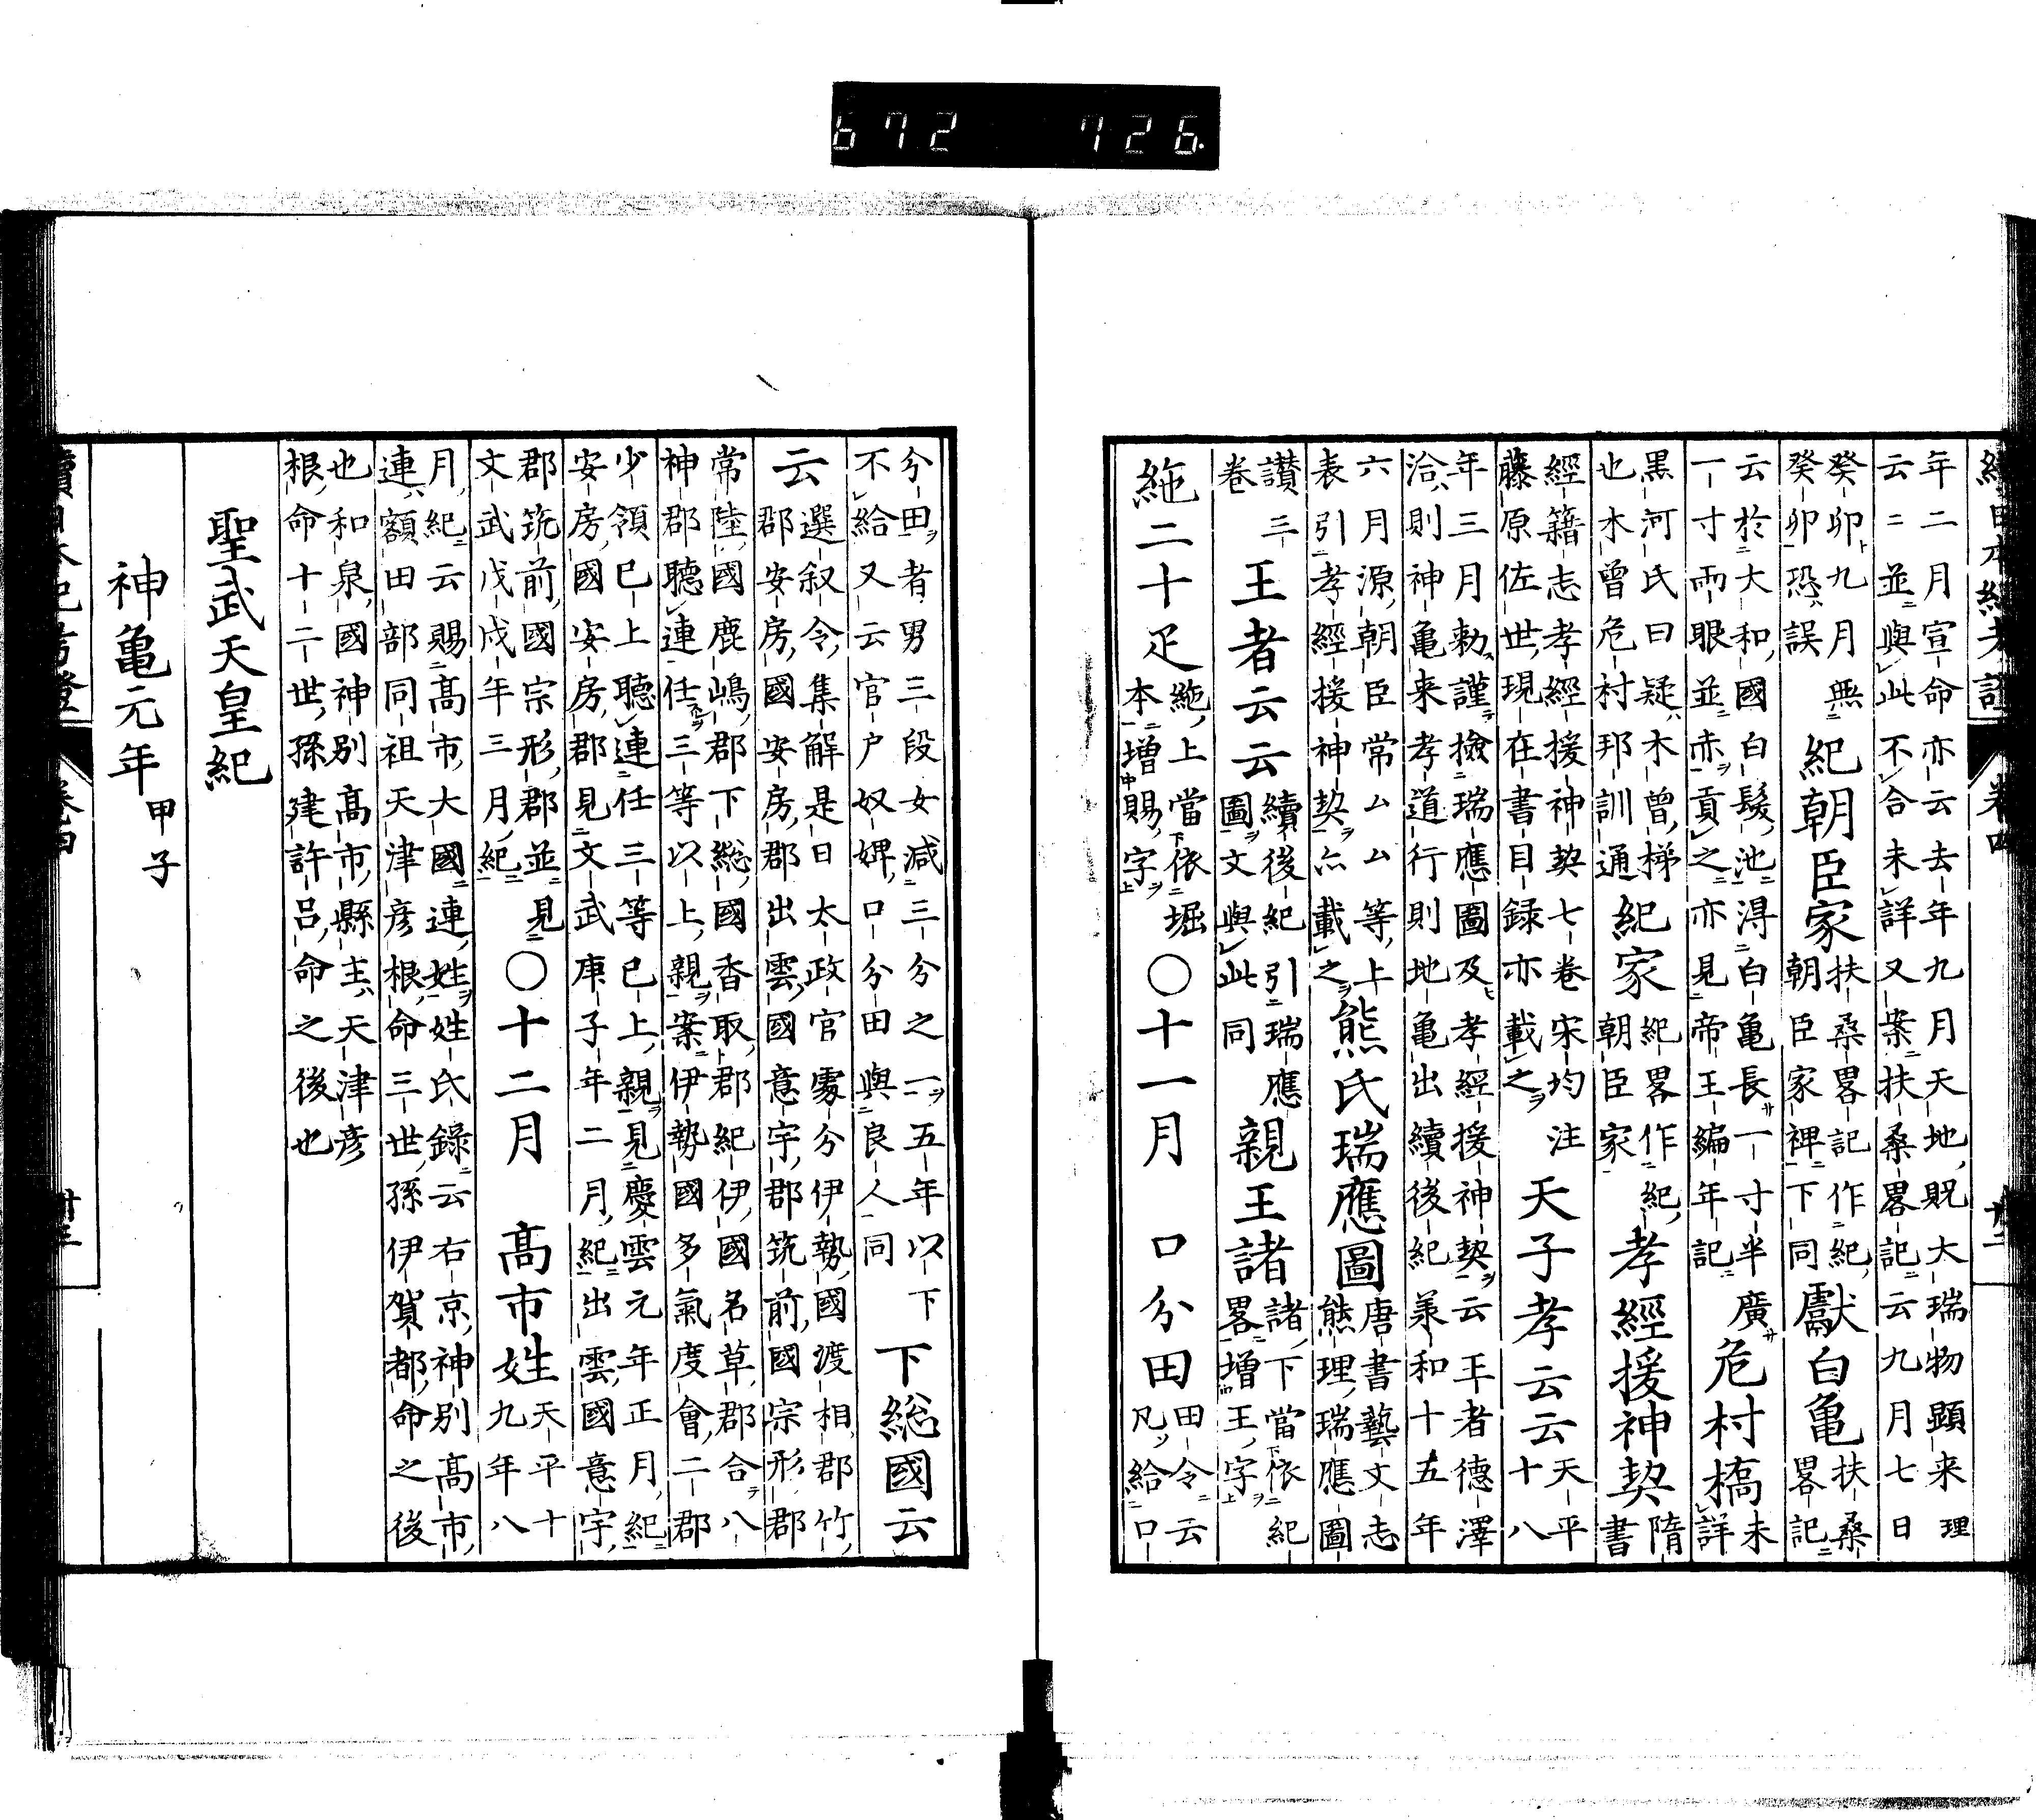 672 726.
年二月宣命亦云去年九月天地貺大瑞物顕来理
云二並與此不合未詳又案扶桑畧記云九月七日
癸卯九月無
癸卯恐誤
紀朝臣家
扶桑畧記作紀
朝臣家裨下同
獻白亀
扶桑
畧記
云於大和國白髮池淂白亀長一寸半廣
一寸両眼並赤貢之亦見帝王編年記
危村橋
未
詳
黒河氏曰疑木曾梯
也木曾危村邦訓通
紀家
紀畧作紀
朝臣家
孝經援神契
隋
書
經籍志孝經援神契七卷宋均注
藤原佐世現在書目録亦載之
天子孝云云
天平
十八
年三月勅謹撿瑞應圖及孝經援神契云王者德澤
洽則神亀来孝道行則地亀出續後紀羕和十五年
六月源朝臣常ムム等上
表引孝經援神契亦載之
熊氏瑞應圖
唐書藝文志
熊理瑞應圖
讃三
卷
王者云云
續後紀引瑞應
圖文與此同
親王諸
諸下當依紀
畧増王字
絁二十疋
絁上當依堀
本増賜字
〇十一月 口分田
田令云
凡給口
分田者男三段女减三分之一五年以下
不給又云官户奴婢口分田與良人同
下総國云
云
選叙令集解是日太政官䖏分伊勢國渡相郡竹
郡安房國安房郡出雲國意宇郡筑前國宗形郡
常陸國鹿嶋郡下総國香取郡紀伊國名草郡合八
神郡聴連任三等以上親案伊勢國多氣度會二郡
少領已上聴連任三等已上親見慶雲元年正月紀
安房國安房郡見文武庚子年二月紀出雲國意宇
郡筑前國宗形郡並見
文武戊戌年三月紀
〇十二月 髙市姓
天平十
九年八
月紀云賜髙市大國連姓姓氏録云右京神別髙市
連額田部同祖天津彦根命三世孫伊賀都命之後
也和泉國神別髙市縣主天津彦
根命十二世孫建許呂命之後也
聖武天皇紀
神亀元年
甲子